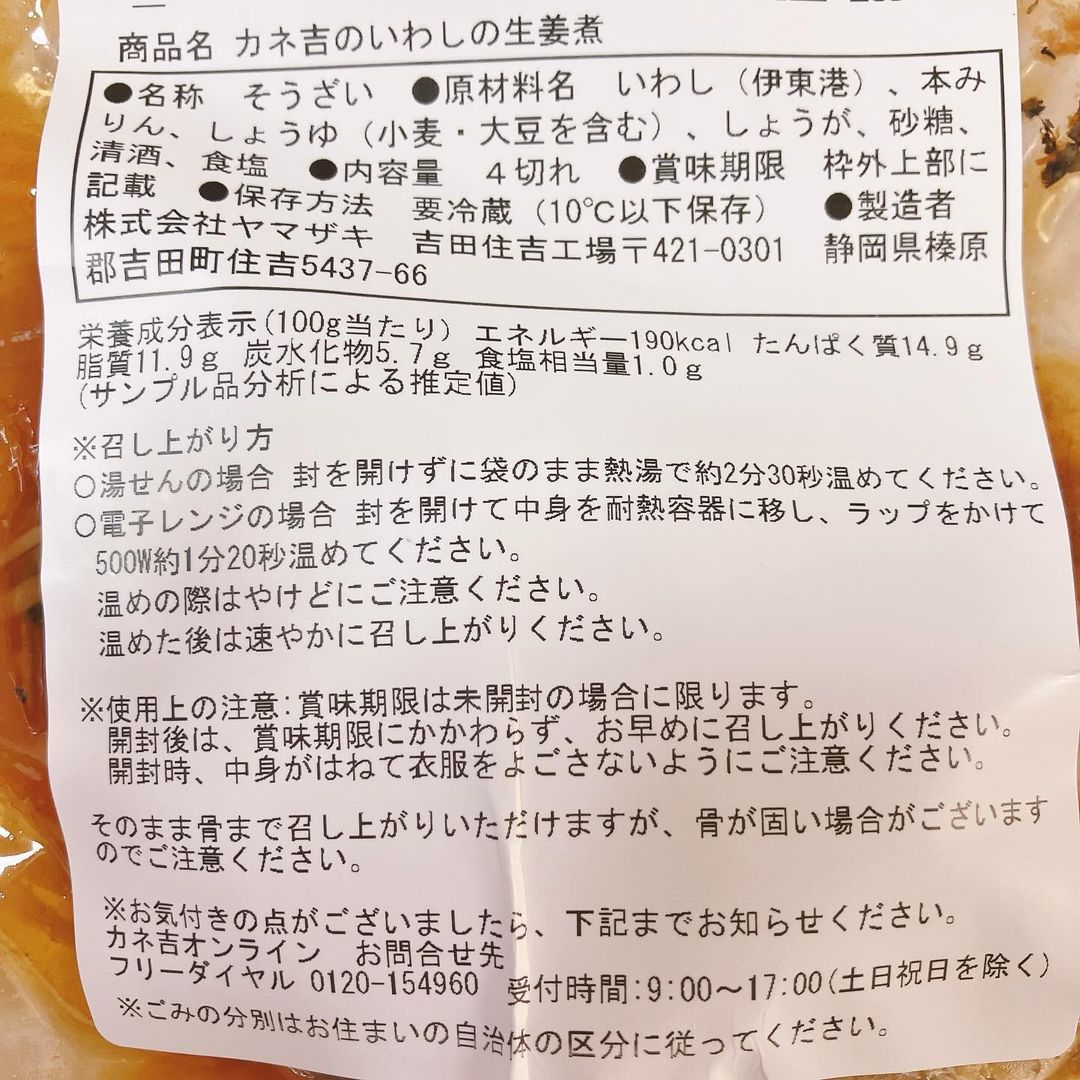 商品名 カネ吉のいわしの生姜煮
●名称 そうざい ●原材料名 いわし（伊東港）、本み
りん、しょうゆ（小麦・大豆を含む）、しょうが、砂糖、
清酒、食塩 ●内容量 4切れ ●賞味期限 枠外上部に
記載 ●保存方法 要冷蔵（10℃以下保存） ●製造者
株式会社ヤマザキ 吉田住吉工場〒421-0301 静岡県榛原
郡吉田町住吉5437-66
栄養成分表示(100g当たり) エネルギー190kcal たんぱく質14.9g
脂質11.9g 炭水化物5.7g 食塩相当量1.0g
(サンプル品分析による推定値)
※召し上がり方
○湯せんの場合 封を開けずに袋のまま熱湯で約2分30秒温めてください。
○電子レンジの場合 封を開けて中身を耐熱容器に移し、ラップをかけて
500W約1分20秒温めてください。
温めの際はやけどにご注意ください。
温めた後は速やかに召し上がりください。
※使用上の注意:賞味期限は未開封の場合に限ります。
開封後は、賞味期限にかかわらず、お早めに召し上がりください。
開封時、中身がはねて衣服をよごさないようにご注意ください。
そのまま骨まで召し上がりいただけますが、骨が固い場合がございます
のでご注意ください。
※お気付きの点がございましたら、下記までお知らせください。
カネ吉オンライン お問合せ先
フリーダイヤル 0120-154960 受付時間:9:00～17:00(土日祝日を除く)
※ごみの分別はお住まいの自治体の区分に従ってください。